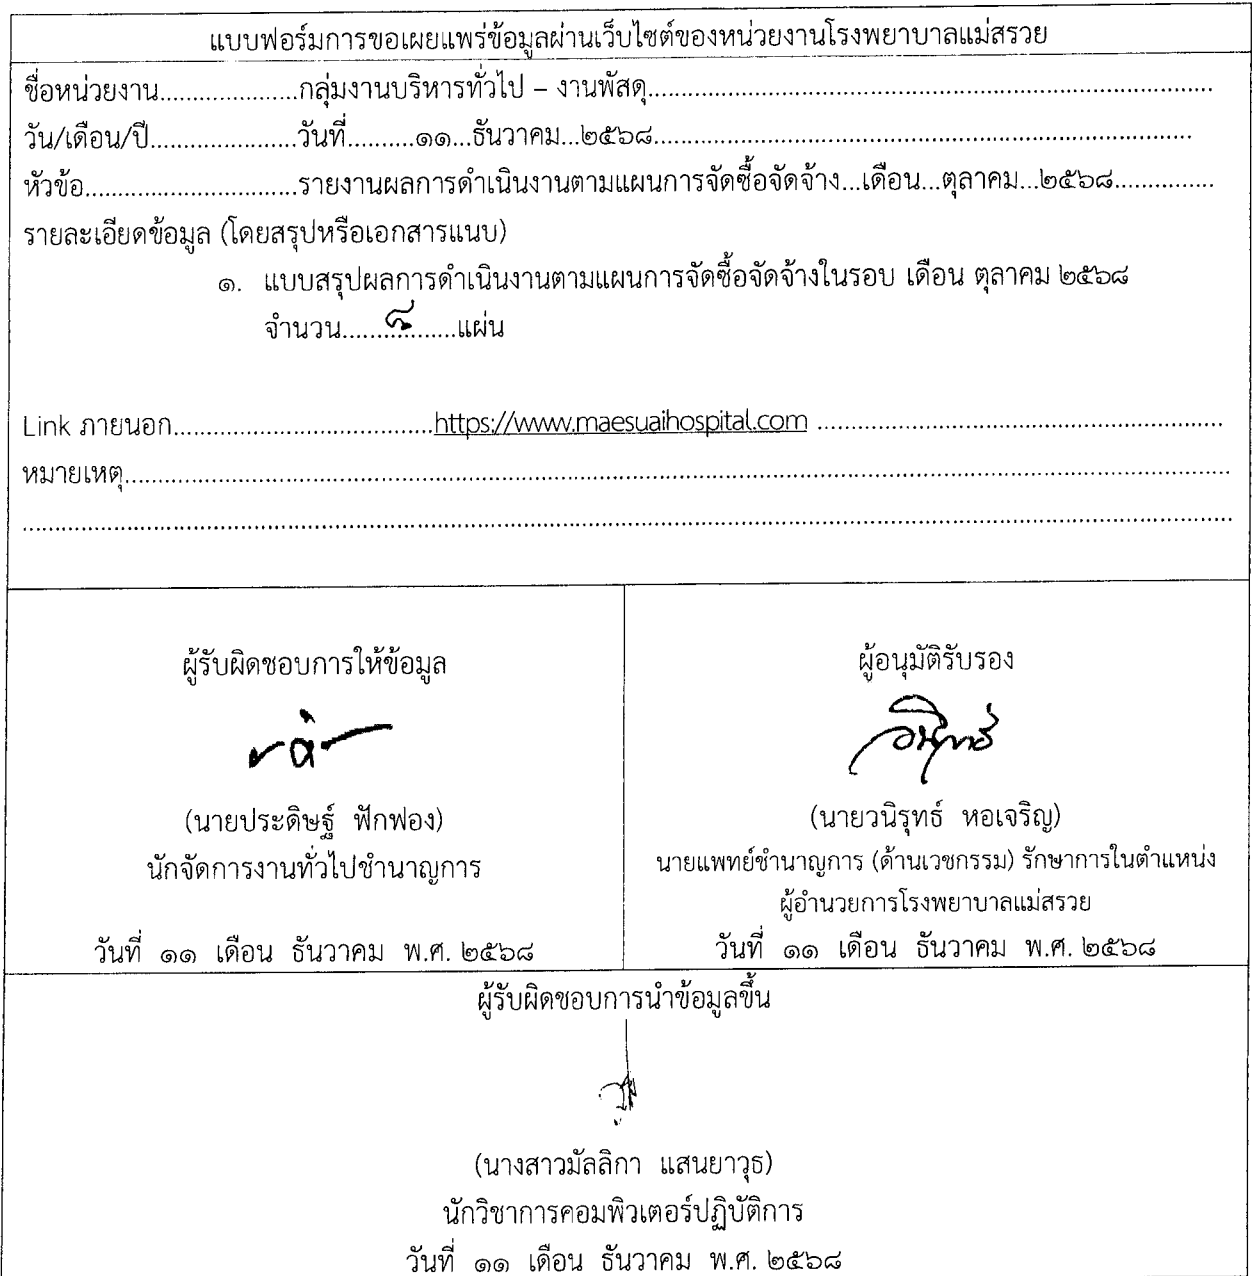 แบบฟอร์มการขอเผยแพร่ข้อมูลผ่านเว็บไซต์ของหน่วยงานโรงพยาบาลแม่สรวย
ชื่อหน่วยงาน.....................กลุ่มงานบริหารทั่วไป – งานพัสดุ.......................................................................................
วัน/เดือน/ปี......................วันที่..........๑๑...ธันวาคม...๒๕๖๘..................................................................................
หัวข้อ................................รายงานผลการดำเนินงานตามแผนการจัดซื้อจัดจ้าง...เดือน...ตุลาคม...๒๕๖๘...............
รายละเอียดข้อมูล (โดยสรุปหรือเอกสารแนบ)
๑. แบบสรุปผลการดำเนินงานตามแผนการจัดซื้อจัดจ้างในรอบ เดือน ตุลาคม ๒๕๖๘
จำนวน.................แผ่น
Link ภายนอก.......................................https://www.maesuaihospital.com ..............................................................
หมายเหตุ.........................................................................................................................................................................
.........................................................................................................................................................................................
ผู้รับผิดชอบการให้ข้อมูล
(นายประดิษฐ์ ฟักฟอง)
นักจัดการงานทั่วไปชำนาญการ
วันที่ ๑๑ เดือน ธันวาคม พ.ศ. ๒๕๖๘
ผู้อนุมัติรับรอง
(นายวนิรุทธ์ หอเจริญ)
นายแพทย์ชำนาญการ (ด้านเวชกรรม) รักษาการในตำแหน่ง
ผู้อำนวยการโรงพยาบาลแม่สรวย
วันที่ ๑๑ เดือน ธันวาคม พ.ศ. ๒๕๖๘
ผู้รับผิดชอบการนำข้อมูลขึ้น
(นางสาวมัลลิกา แสนยาวุธ)
นักวิชาการคอมพิวเตอร์ปฏิบัติการ
วันที่ ๑๑ เดือน ธันวาคม พ.ศ. ๒๕๖๘